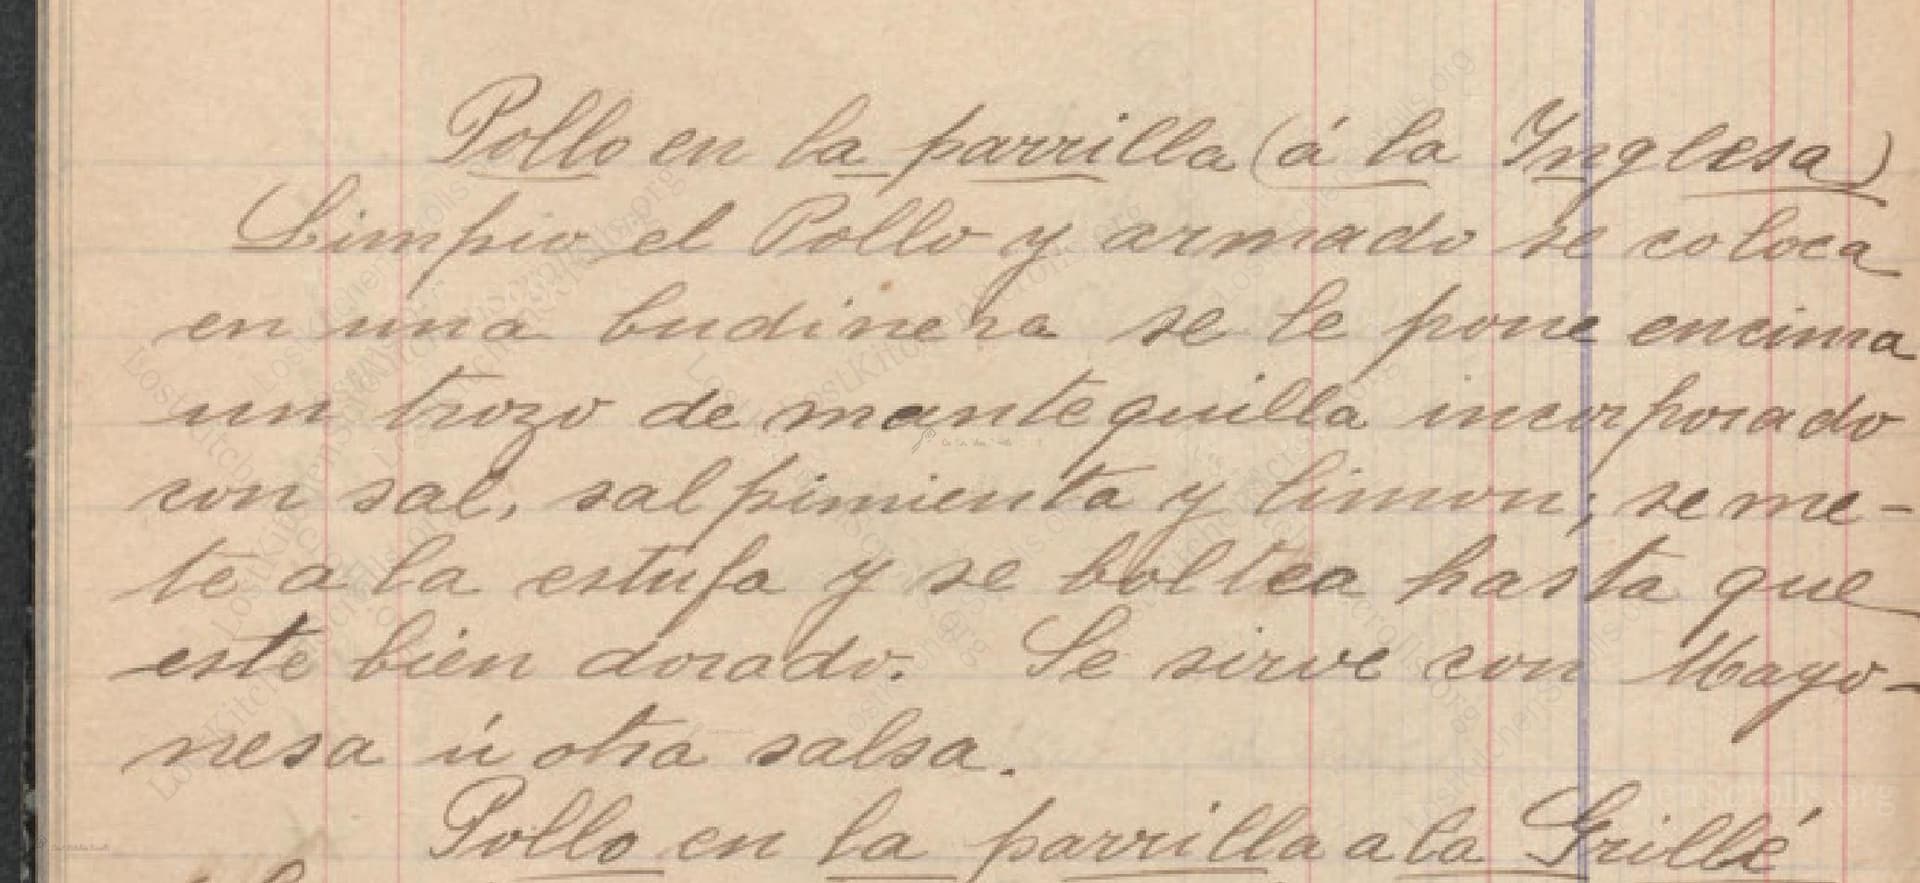 Pollo en la parrilla (á la Inglesa)
Limpio el Pollo y armado se coloca
en una budinera se le pone encima
un trozo de mantequilla incorporado
con sal, salpimienta y limon; se me-
te a la estufa y se boltea hasta que
este bien dorado. Se sirve con Mayo-
nesa ú otra salsa.
Pollo en la parrilla a la Grillé